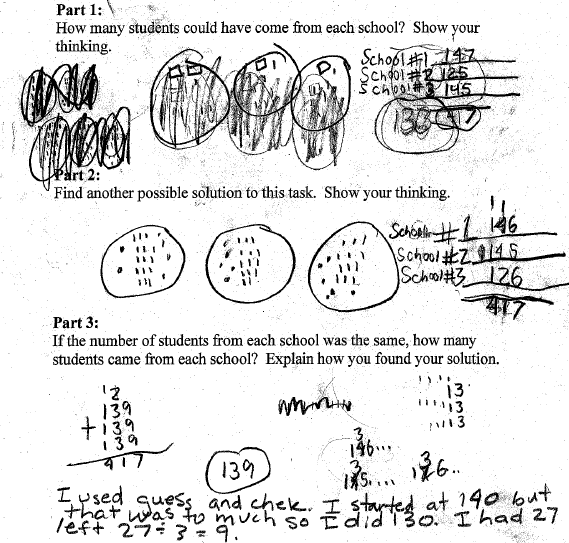 Part 1:
How many students could have come from each school? Show your
thinking.
School #1 147
School #2 125
School #3 145
Part 2:
Find another possible solution to this task. Show your thinking.
School #1 146
School #2 145
School #3 126
417
Part 3:
If the number of students from each school was the same, how many
students came from each school? Explain how you found your solution.
12
139
+139
139
417
139
13
13
13
I used guess and chek. I started at 140 but
that was to much so I did 130. I had 27
left 27÷3=9.